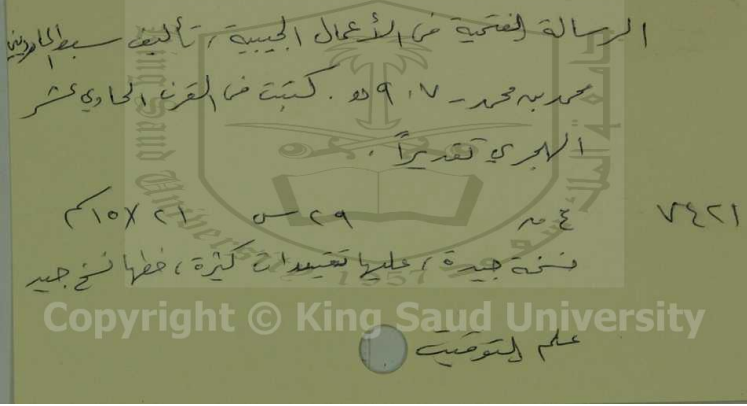 الرسالة الفتحية في الأعمال الجيبية ، تأليف سبط المارديني
محمد بن محمد - ٩٠٧ هـ . كتبت في القرن الحادي عشر
الهجري تقديراً .
٧٤٢١ ٤ ق ٢٩ س ٢١ × ١٥ سم
نسخة جيدة ، عليها تقييدات كثيرة ، خطها نسخ جيد
Copyright © King Saud University
علم التوقيت
جامعة الملك سعود
King Saud University
1957